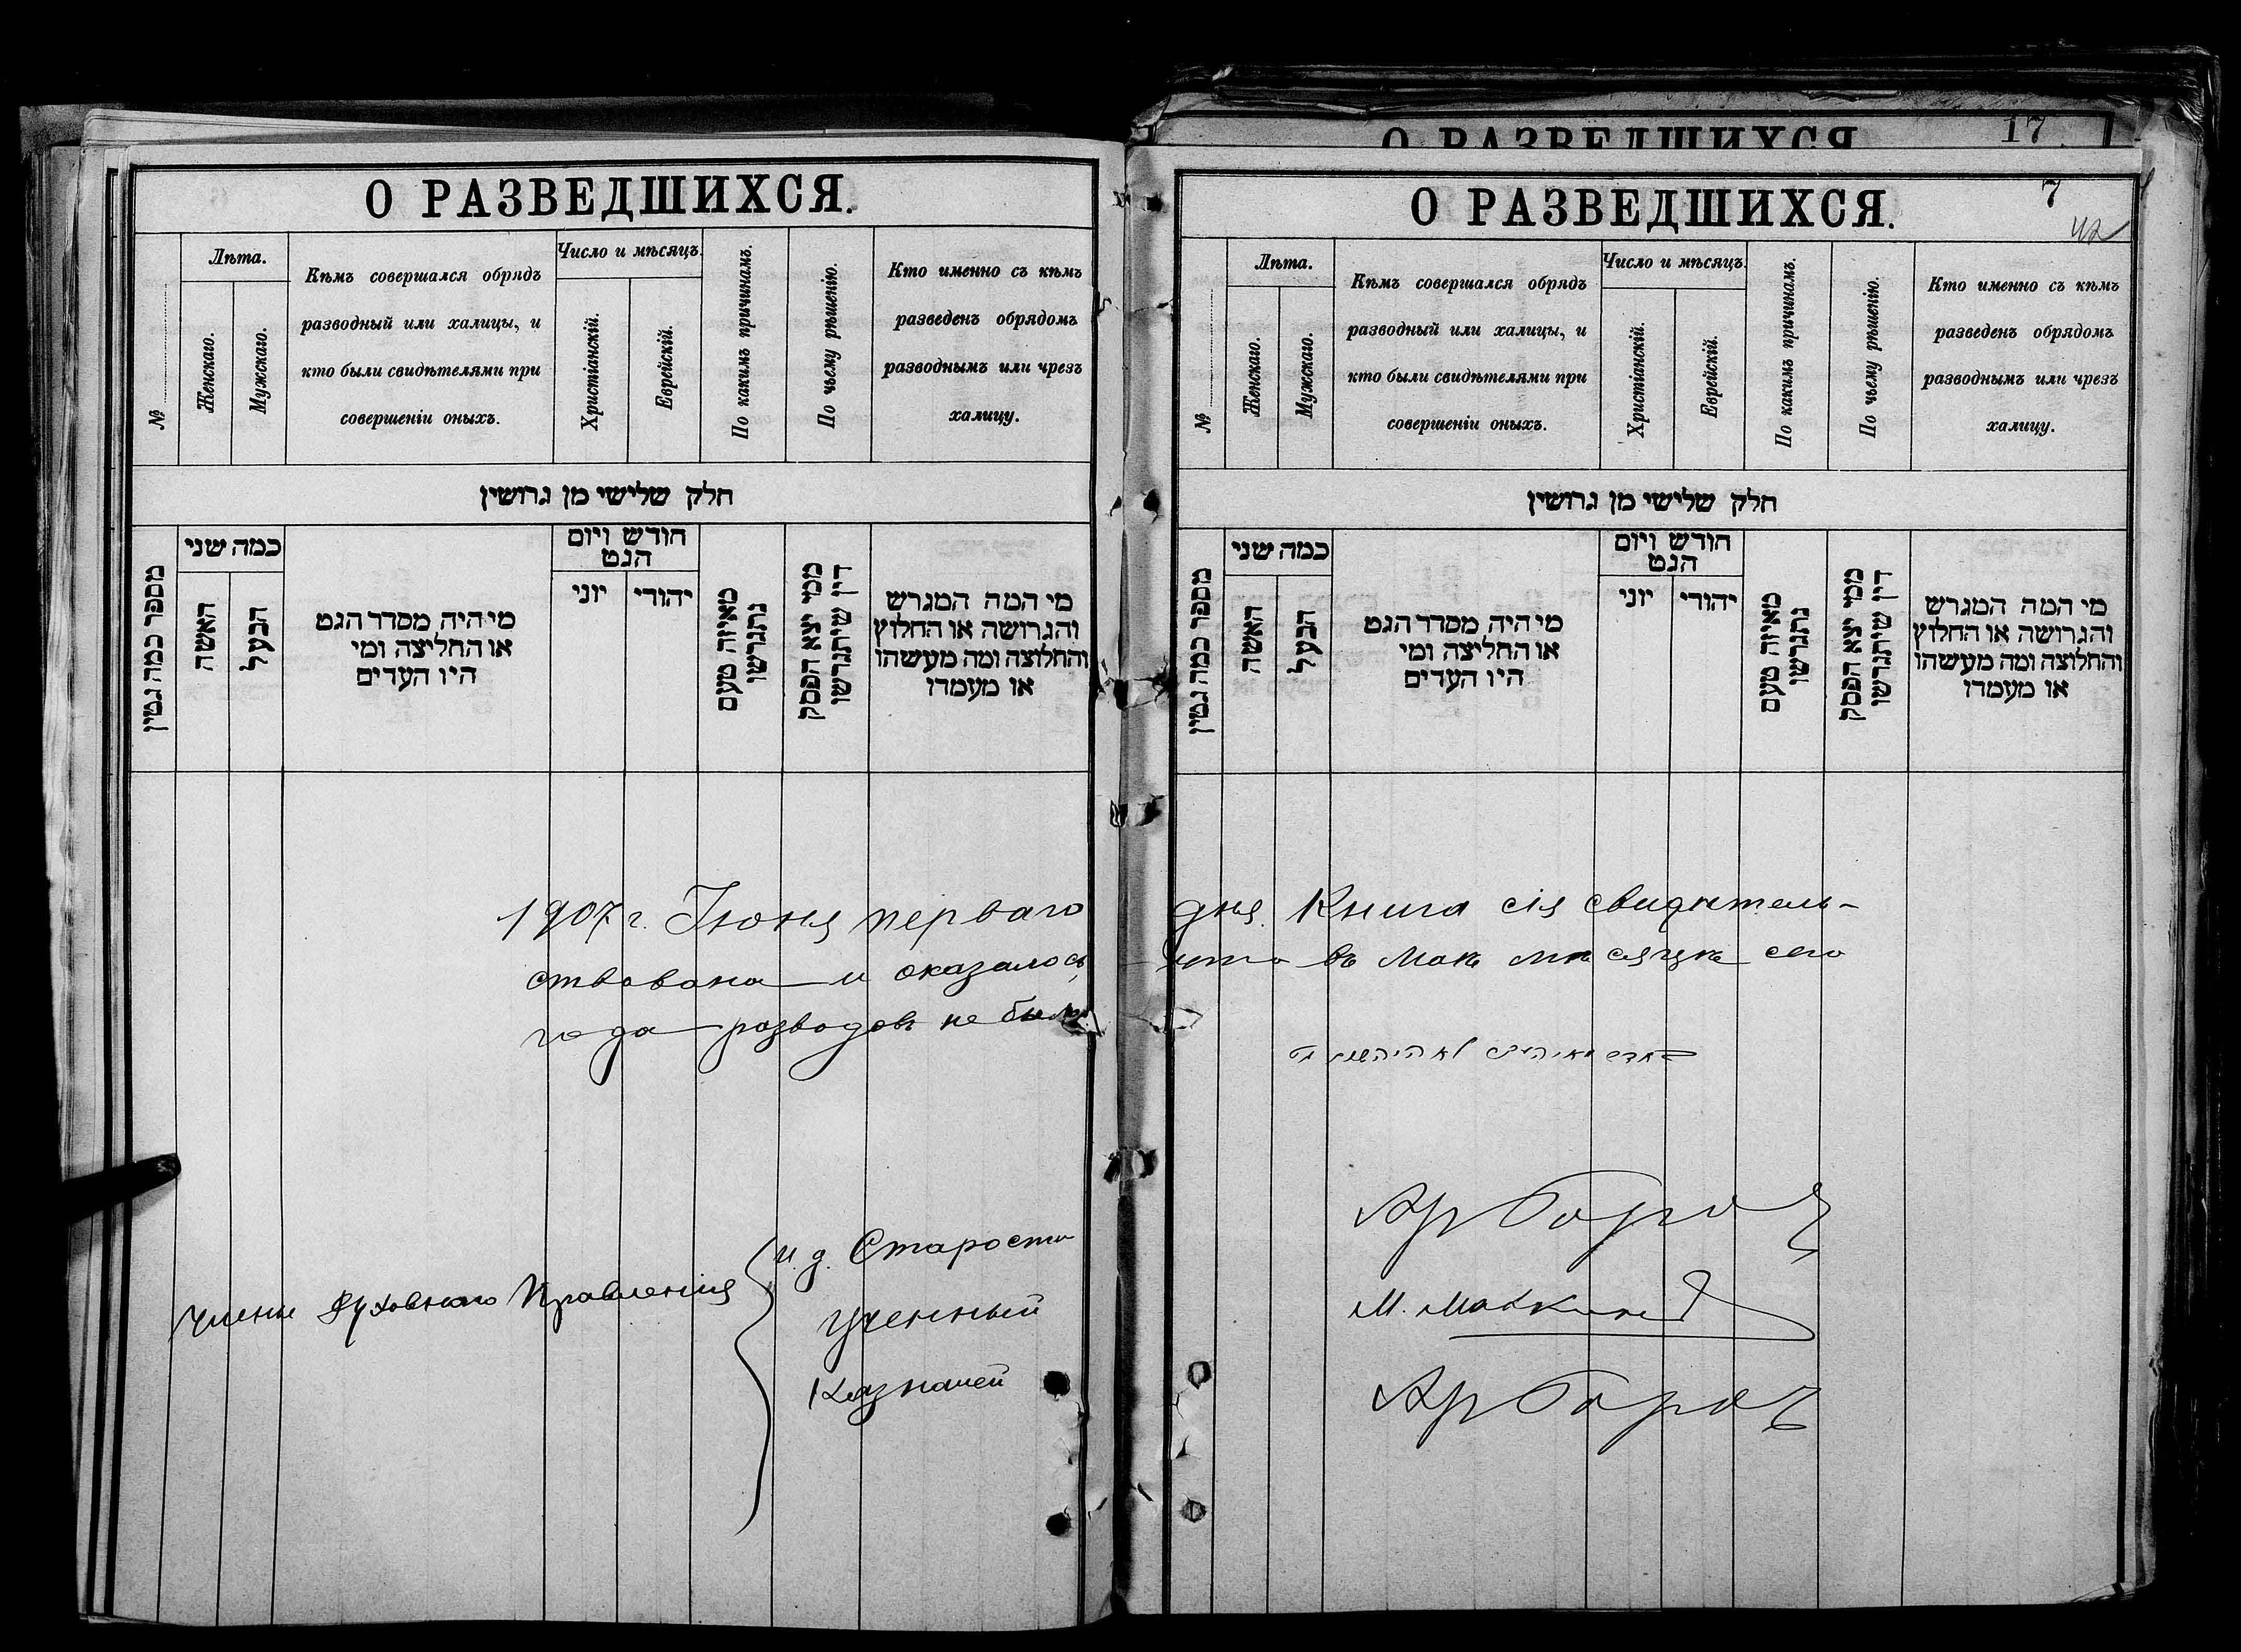 О РАЗВЕДШИХСЯ.
№
Лѣта.
Женскаго.
Мужскаго.
Кѣмъ совершался обрядъ
разводный или халицы, и
кто были свидѣтелями при
совершеніи оныхъ.
Число и мѣсяцъ.
Христіанскій.
Еврейскій.
По какимъ причинамъ.
По чьему рѣшенію.
Кто именно съ кѣмъ
разведенъ обрядомъ
разводнымъ или чрезъ
халицу.
חלק שלישי מן גרושין
מספר כמה גטין
כמה שני
האשה
הבעל
מי היה מסדר הגט
או החליצה ומי
היו העדים
חודש ויום
הגט
יוני
יהודי
מאיזה טעם
נתגרשו
ממי יצא הפסק
דין שיתגרשו
מי המה המגרש
והגרושה או החלוץ
והחלוצה ומה מעשהו
או מעמדו
О РАЗВЕДШИХСЯ
17
О РАЗВЕДШИХСЯ.
7
42
№
Лѣта.
Женскаго.
Мужскаго.
Кѣмъ совершался обрядъ
разводный или халицы, и
кто были свидѣтелями при
совершеніи оныхъ.
Число и мѣсяцъ.
Христіанскій.
Еврейскій.
По какимъ причинамъ.
По чьему рѣшенію.
Кто именно съ кѣмъ
разведенъ обрядомъ
разводнымъ или чрезъ
халицу.
חלק שלישי מן גרושין
מספר כמה גטין
כמה שני
האשה
הבעל
מי היה מסדר הגט
או החליצה ומי
היו העדים
חודש ויום
הגט
יוני
יהודי
מאיזה טעם
נתגרשו
ממי יצא הפסק
דין שיתגרשו
מי המה המגרש
והגרושה או החלוץ
והחלוצה ומה מעשהו
או מעמדו
1907 г. Іюня перваго дня. Книга сія свидѣтель-
ствована и оказалось, что въ Маѣ мѣсяцѣ сего
года разводовъ не было
Члены Духовнаго Правленія
И. д. Старосты
Ученный
Казначей